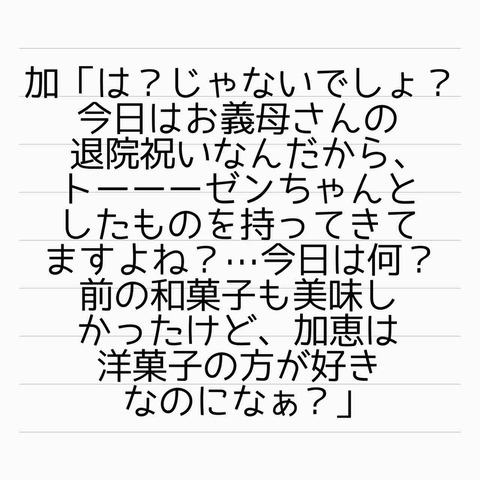 加「は？じゃないでしょ？
今日はお義母さんの
退院祝いなんだから、
トーーーゼンちゃんと
したものを持ってきて
ますよね？…今日は何？
前の和菓子も美味し
かったけど、加恵は
洋菓子の方が好き
なのになぁ？」